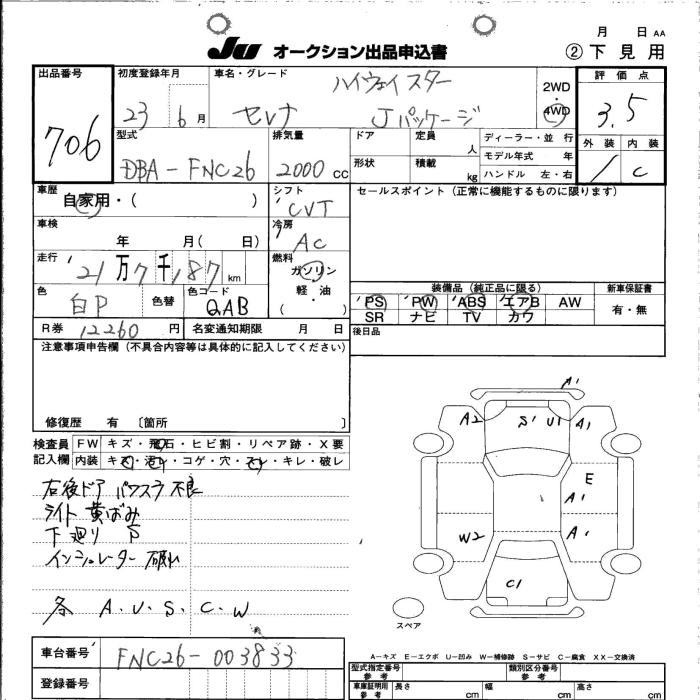 JU オークション出品申込書
月 日 AA
② 下見用
出品番号 初度登録年月 車名・グレード
評価点
706
23 6 月
セレナ ハイウェイスター
Jパッケージ
2WD
・
4WD
3.5
外装 内装
/ C
型式 排気量
DBA-FNC26 2000 CC
ドア 定員 人
形状 積載 kg
ディーラー・並行
モデル年式 年
ハンドル 左・右
車歴 自家用・( )
シフト CVT
セールスポイント(正常に機能するものに限ります)
車検 年 月( 日)
冷房 AC
走行 '21万7千187 km
燃料 ガソリン
軽・油
( ・ )
色 白P 色替 色コード QAB
装備品(純正品に限る) 新車保証書
PS PW ABS エアB AW 有・無
SR ナビ TV カワ
R券 12260 円 名変通知期限 月 日
後日品
注意事項申告欄(不具合内容等は具体的に記入してください)
修復歴 有 〔箇所 〕
検査員 FW キズ・飛石・ヒビ割・リペア跡・X要
記入欄 内装 キズ・汚れ・コゲ・穴・スレ・キレ・破レ
右後ドア パワスラ不良
ライト 黄ばみ
下廻り P
インシュレーター 破れ
条 A.U.S.C.W
A'
A2 S' U1 A1
E
A'
W2 A'
C1
スペア
A-キズ E-エクボ U-凹み W-補修跡 S-サビ C-腐食 XX-交換済
車台番号 FNC26-003833
登録番号
型式指定番号 類別区分番号
参考
車庫証明用 参考 長さ cm 幅 cm 高さ cm